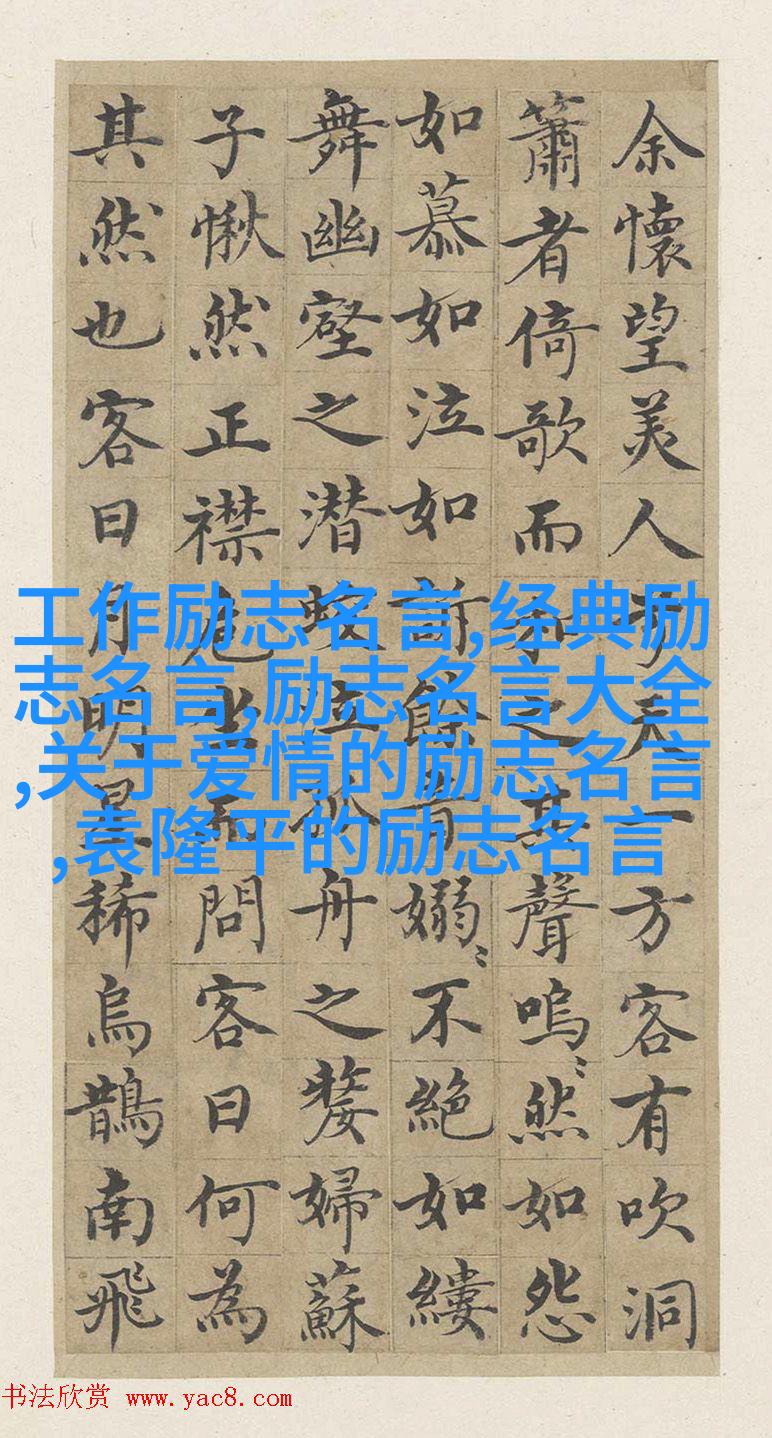 余懷望美人天一方客有吹洞
簫者倚歌而和之其聲嗚〻然如怨
如慕如泣如訴餘音嫋〻不絶如縷
舞幽壑之潜蛟泣孤舟之嫠婦蘇
子愀然正襟危坐而問客曰何為
其然也客曰月明星稀烏鵲南飛
工作励志名言,经典励
志名言,励志名言大全
,关于爱情的励志名言
,袁隆平的励志名言
书法欣赏 www.yac8.com